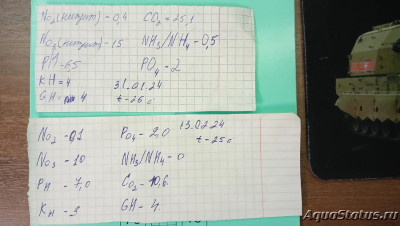 No₂(нитрит) - 0,4 CO₂ = 25,1
No₃(нитрат) - 15 NH3/NH4 - 0,5
PH - 6.5 PO4 - 2
KH = 4 31.01.24
GH = 4 t - 25 c
No₂ - 0,1 PO₄ - 2,0 13.02.24
t - 25 c
No₃ - 10 NH3/NH4 - 0
PH - 7,0 CO₂ - 10,6
KH - 3 GH - 4
AquaStatus.ru